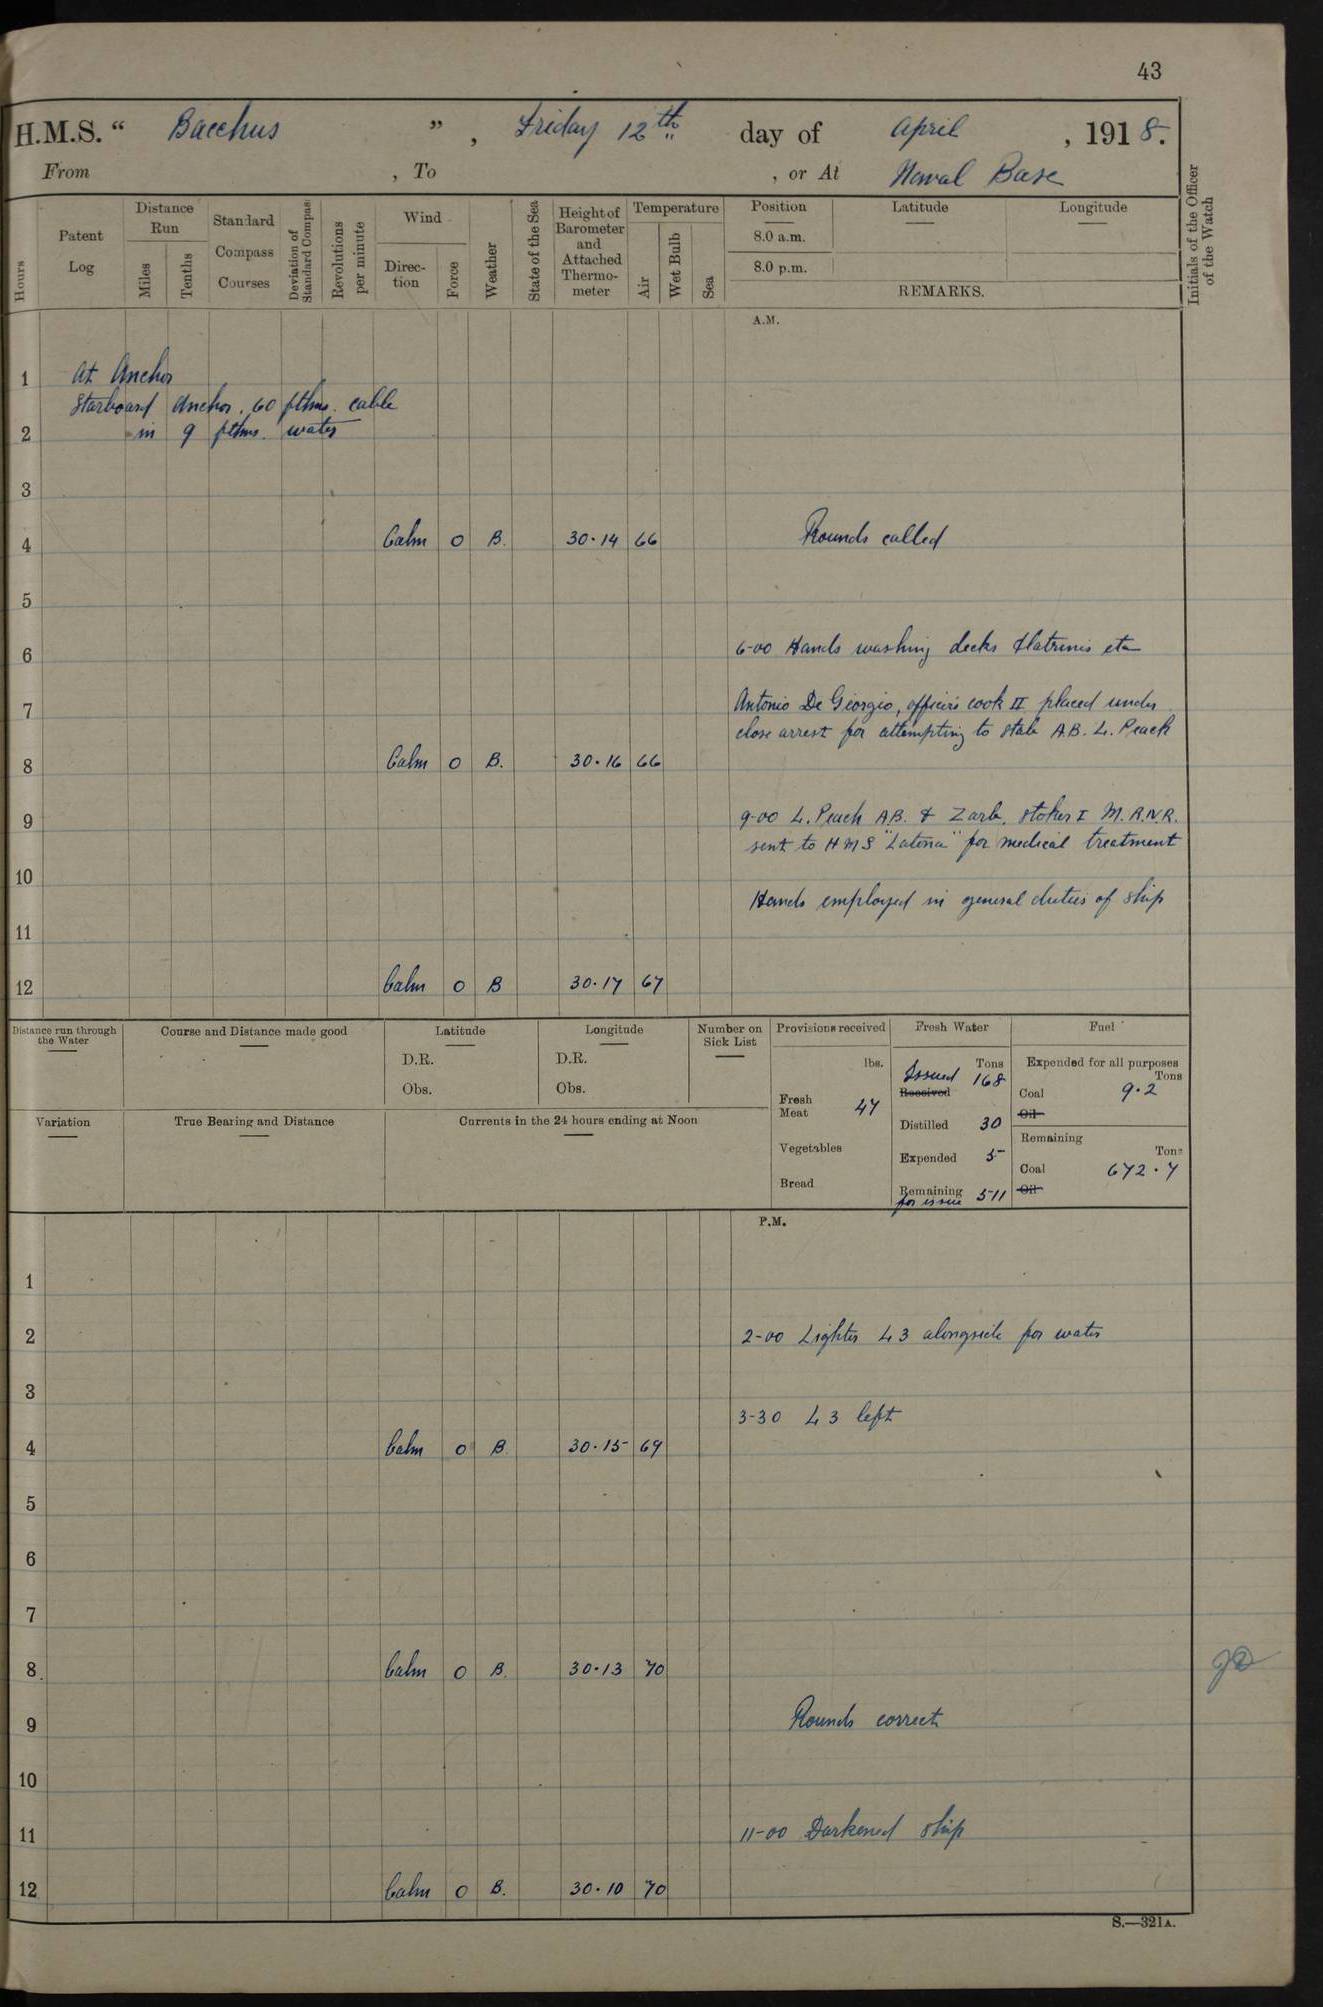 43
H.M.S. “ Bacchus ” , Friday 12th day of April , 1918.
From , To , or At Naval Base
Hours
Patent Log
Distance Run
Miles
Tenths
Standard Compass Courses
Deviation of Standard Compass
Revolutions per minute
Wind
Direc-tion
Force
Weather
State of the Sea
Height of Barometer and Attached Thermo-meter
Temperature
Air
Wet Bulb
Sea
Position
8.0 a.m.
8.0 p.m.
Latitude
Longitude
REMARKS.
Initials of the Officer of the Watch
A.M.
1 At Anchor
Starboard Anchor. 60 fthms. cable
2 in 9 fthms. water
3
4 Calm 0 B. 30.14 66 Rounds called
5
6 6-00 Hands washing decks & latrines etc
7 Antonio De Giorgio, officers cook II placed under
close arrest for attempting to stab A.B. L. Peach
8 Calm 0 B. 30.16 66
9 9-00 L. Peach A.B. & Zarb, Stoker I M.R.N.R.
sent to HMS "Latona" for medical treatment
10 Hands employed in general duties of ship
11
12 Calm 0 B 30.17 67
Distance run through the Water
Course and Distance made good
Latitude
D.R.
Obs.
Longitude
D.R.
Obs.
Number on Sick List
Variation
True Bearing and Distance
Currents in the 24 hours ending at Noon
Provisions received
lbs.
Fresh Meat 47
Vegetables
Bread
Fresh Water
Tons
Issued 168
Received
Distilled 30
Expended 5
Remaining for issue 511
Fuel
Expended for all purposes
Tons
Coal 9.2
Oil
Remaining
Tons
Coal 672.7
Oil
P.M.
1
2 2-00 Lighter L3 alongside for water
3 3-30 L3 left
4 Calm 0 B. 30.15 69
5
6
7
8 Calm 0 B. 30.13 70
9 Rounds correct
10
11 11-00 Darkened ship
12 Calm 0 B. 30.10 70
S.—321A.